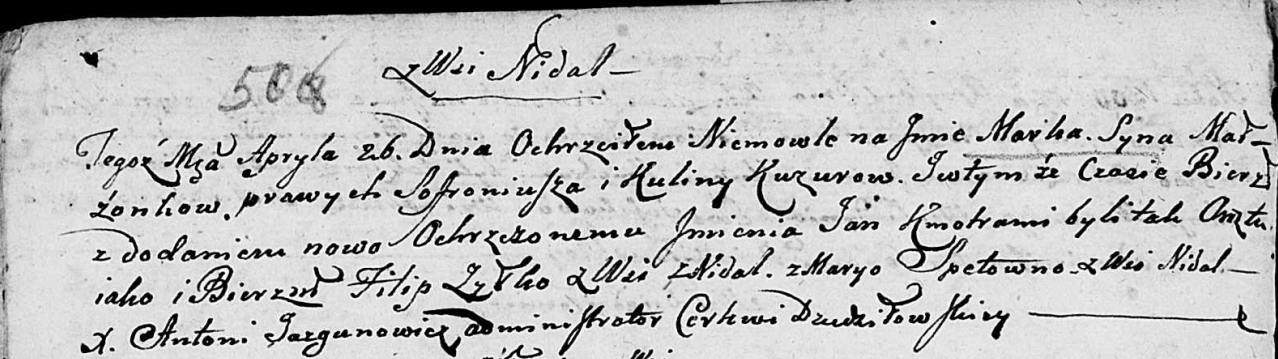 z Wsi Nidal –
506
Tegoż Mca Apryla 26. Dnia Ochrzciłem Niemowle na Jmie Marka. Syna Mał-
żonkow prawych Sofroniusza i Kuliny Kuzurow. Jwtym że Czasie Bierz
z dodaniem nowo Ochrzczonemu Jmienia Jan Kmotrami byli tak Chrztu
iako i Bierzm Filip Zyłko z Wsi z Nidal. z Maryo Spetowno z Wsi Nidal –
X. Antoni Jazgunowicz administrator Cerkwi Dzudziłowskiey